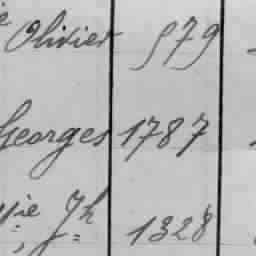 Olivier 579
Georges 1787
Jh 1328